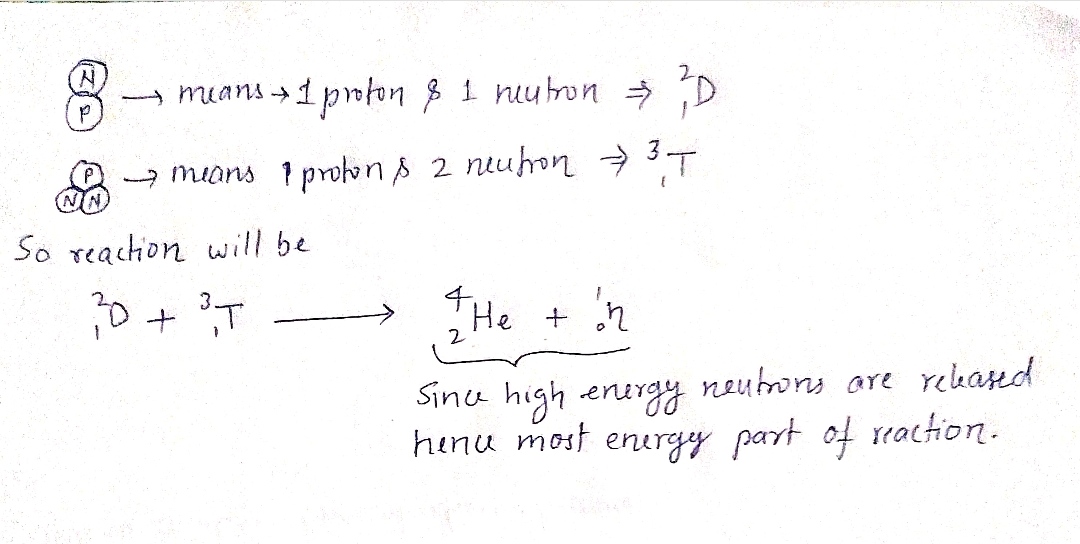 N
P → means → 1 proton & 1 neutron ⇒ ²₁D
P
N N → means 1 proton & 2 neutron ⇒ ³₁T
So reaction will be
²₁D + ³₁T ⟶ ⁴₂He + ¹₀n
Since high energy neutrons are released
hence most energy part of reaction.